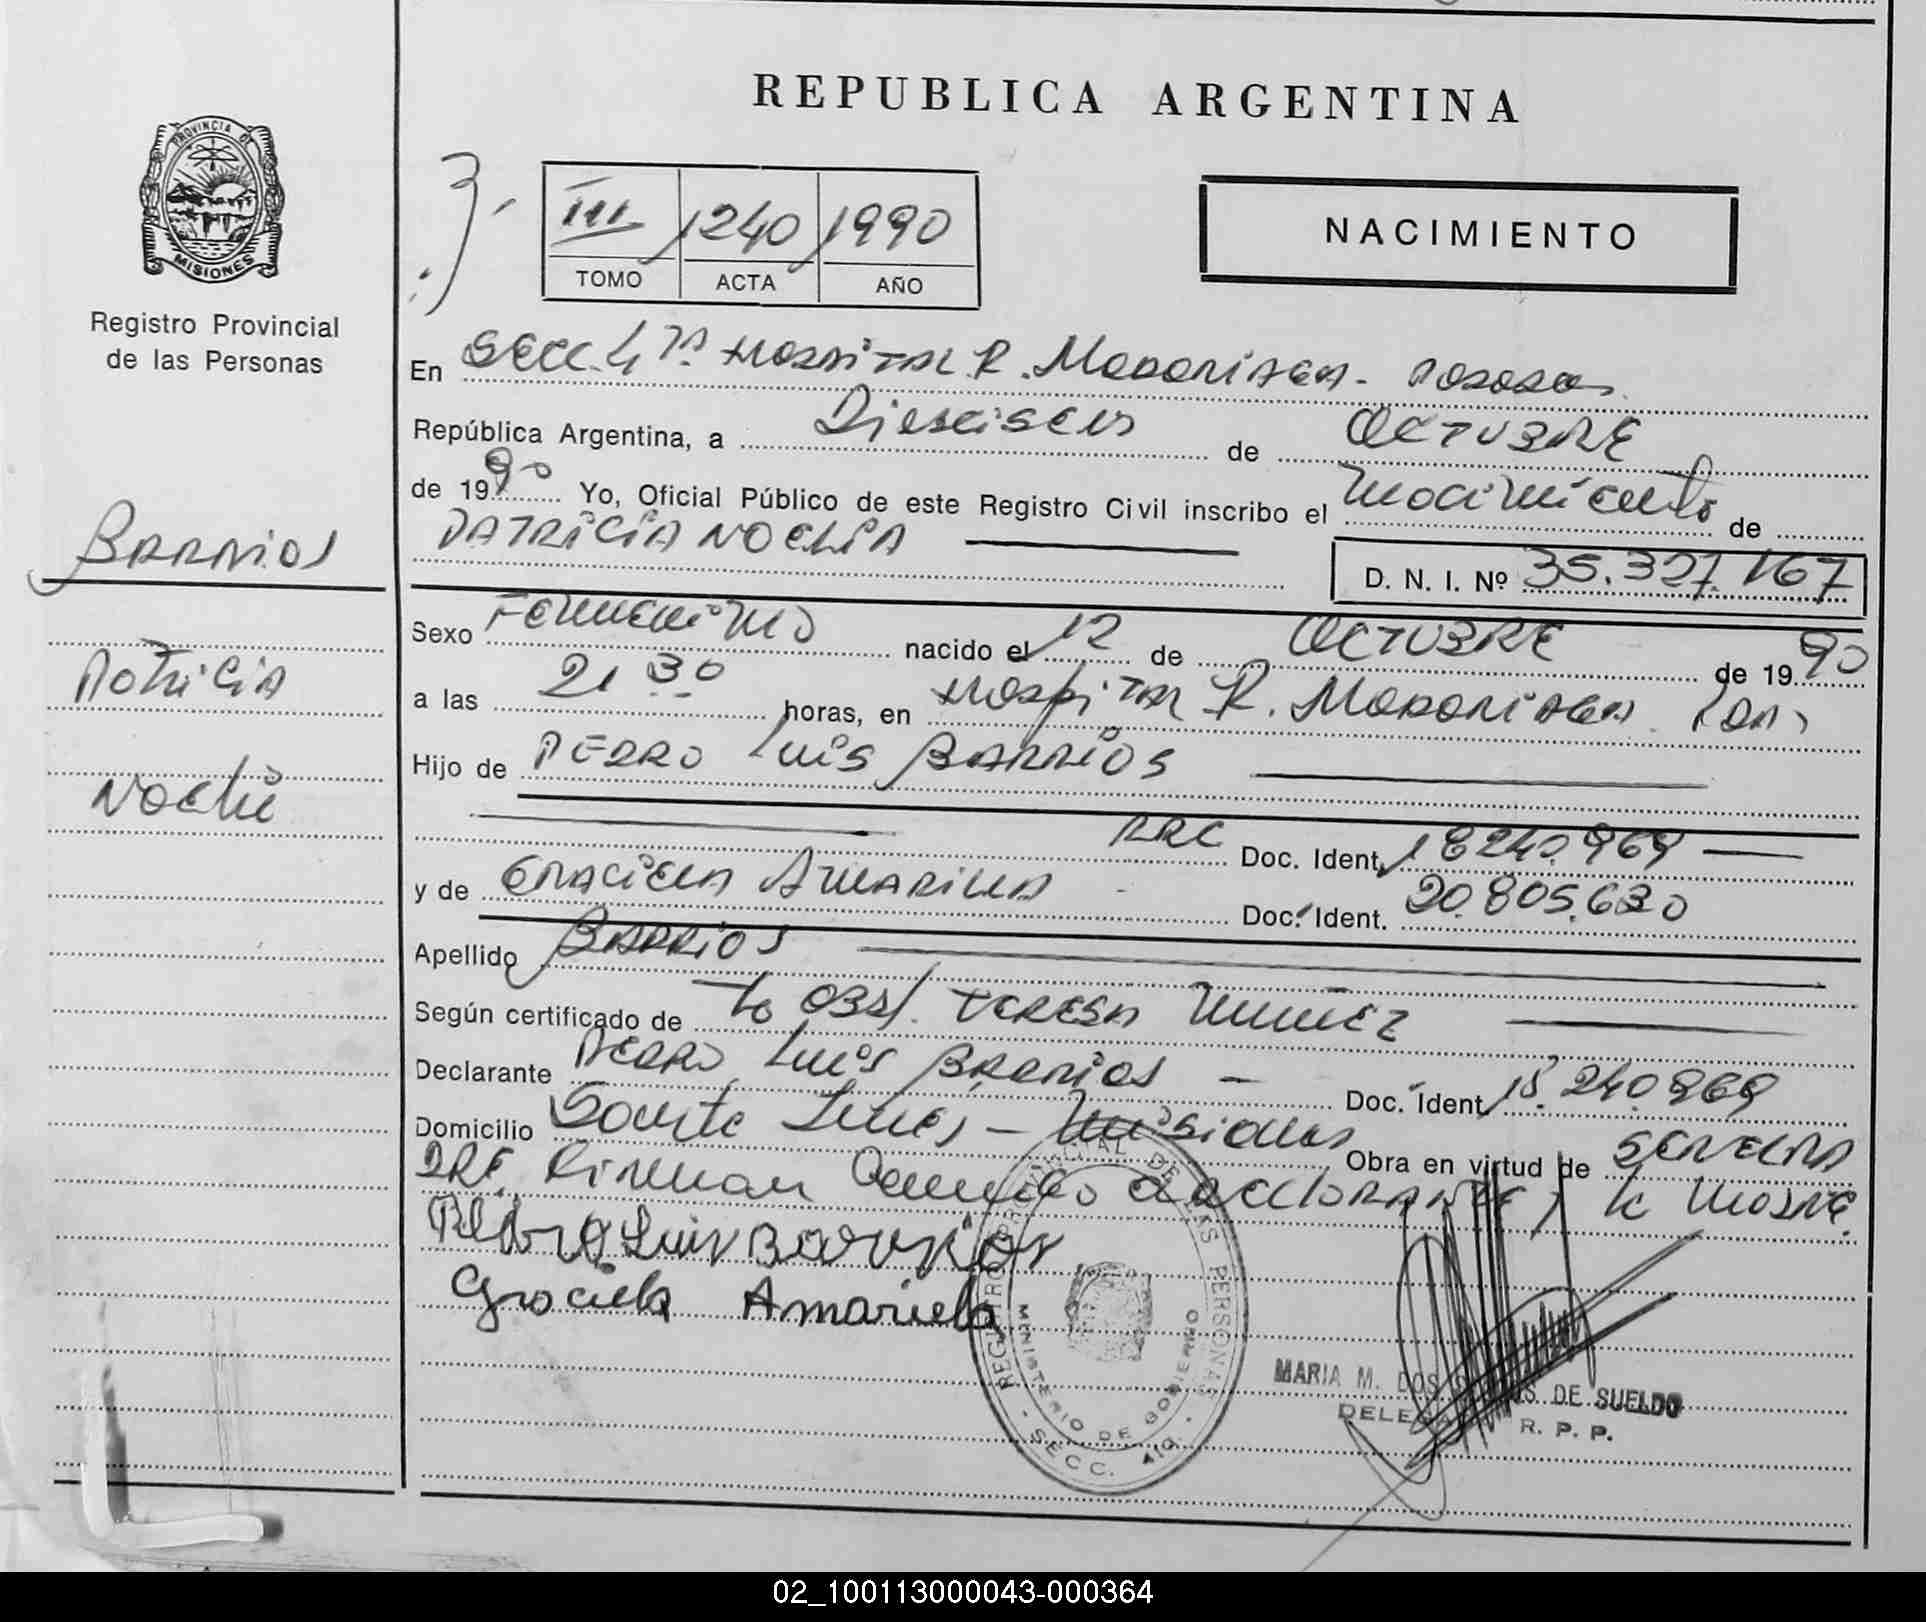 REPUBLICA ARGENTINA
PROVINCIA DE
MISIONES
Registro Provincial
de las Personas
III 1240 1990
TOMO ACTA AÑO
NACIMIENTO
En SECC. 4ta. HOSPITAL R. MADARIAGA - POSADAS
República Argentina, a Dieciseis de OCTUBRE
de 1990 Yo, Oficial Público de este Registro Civil inscribo el nacimiento de
PATRICIA NOELIA
D. N. I. Nº 35.327.167
BARRIOS
PATRICIA
NOELIA
Sexo FEMENINO nacido el 12 de OCTUBRE de 1990
a las 21 30 horas, en HOSPITAL R. MADARIAGA
Hijo de PEDRO LUIS BARRIOS
Doc. Ident. 18240.969
y de GRACIELA AMARILLA Doc. Ident. 20.805.630
Apellido BARRIOS
Según certificado de la OBST. TERESA NUÑEZ
Declarante PEDRO LUIS BARRIOS Doc. Ident. 18.240.969
Domicilio Misiones Obra en virtud de
DRE. Firman declarante y la MADRE.
Pedro Luis Barrios
Graciela Amarilla
REGISTRO PROVINCIAL DE LAS PERSONAS
MINISTERIO DE GOBIERNO
SECC. 4ta.
MARIA M. DOS DE SUELDO
R. P. P.
02_100113000043-000364